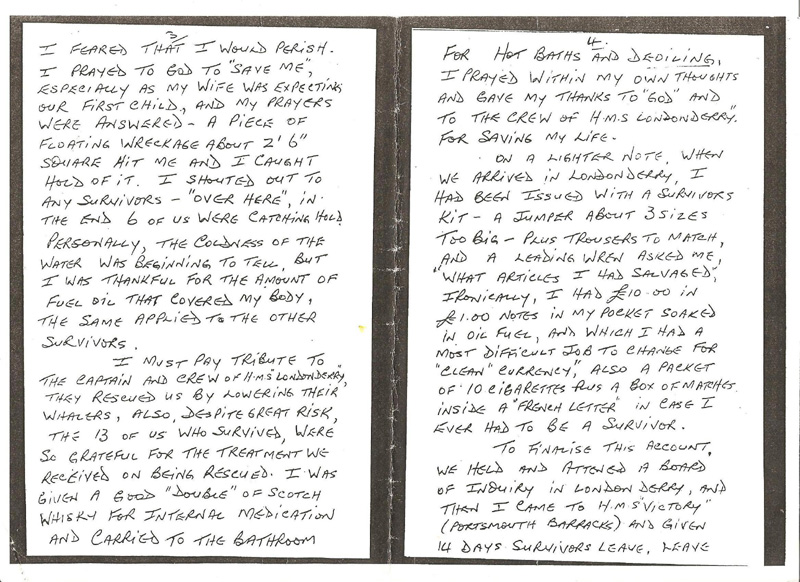 3
I FEARED THAT I WOULD PERISH.
I PRAYED TO GOD TO "SAVE ME",
ESPECIALLY AS MY WIFE WAS EXPECTING
OUR FIRST CHILD, AND MY PRAYERS
WERE ANSWERED - A PIECE OF
FLOATING WRECKAGE ABOUT 2' 6"
SQUARE HIT ME AND I CAUGHT
HOLD OF IT. I SHOUTED OUT TO
ANY SURVIVORS - "OVER HERE", IN
THE END 6 OF US WERE CATCHING HOLD.
PERSONALLY, THE COLDNESS OF THE
WATER WAS BEGINNING TO TELL, BUT
I WAS THANKFUL FOR THE AMOUNT OF
FUEL OIL THAT COVERED MY BODY,
THE SAME APPLIED TO THE OTHER
SURVIVORS.
I MUST PAY TRIBUTE TO
THE CAPTAIN AND CREW OF H.M.S "LONDONDERRY",
THEY RESCUED US BY LOWERING THEIR
WHALERS, ALSO, DESPITE GREAT RISK,
THE 13 OF US WHO SURVIVED, WERE
SO GRATEFUL FOR THE TREATMENT WE
RECEIVED ON BEING RESCUED. I WAS
GIVEN A GOOD "DOUBLE" OF SCOTCH
WHISKY FOR INTERNAL MEDICATION
AND CARRIED TO THE BATHROOM
4.
FOR HOT BATHS AND DEOILING,
I PRAYED WITHIN MY OWN THOUGHTS
AND GAVE MY THANKS TO "GOD" AND
TO THE CREW OF H.M.S LONDONDERRY".
FOR SAVING MY LIFE.
ON A LIGHTER NOTE, WHEN
WE ARRIVED IN LONDONDERRY, I
HAD BEEN ISSUED WITH A SURVIVORS
KIT - A JUMPER ABOUT 3 SIZES
TOO BIG - PLUS TROUSERS TO MATCH,
AND A LEADING WREN ASKED ME,
"WHAT ARTICLES I HAD SALVAGED",
IRONICALLY, I HAD £10.00 IN
£1.00 NOTES IN MY POCKET SOAKED
IN OIL FUEL, AND WHICH I HAD A
MOST DIFFICULT JOB TO CHANGE FOR
"CLEAN" CURRENCY," ALSO A PACKET
OF 10 CIGARETTES PLUS A BOX OF MATCHES
INSIDE A "FRENCH LETTER" IN CASE I
EVER HAD TO BE A SURVIVOR.
TO FINALISE THIS ACCOUNT,
WE HELD AND ATTENED A BOARD
OF INQUIRY IN LONDON DERRY, AND
THEN I CAME TO H.M.S "VICTORY"
(PORTSMOUTH BARRACKS) AND GIVEN
14 DAYS SURVIVORS LEAVE, LEAVE